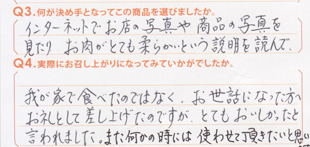 Q3.何が決め手となってこの商品を選びましたか。
インターネットでお店の写真や商品の写真を
見たり お肉がとても柔らかいという説明を読んで。
Q4.実際にお召し上がりになってみていかがでしたか。
我が家で食べたのではなく、お世話になった方へ
お礼として差し上げたのですが、とてもおいしかったと
言われました。また何かの時には 使わせて頂きたいと思い